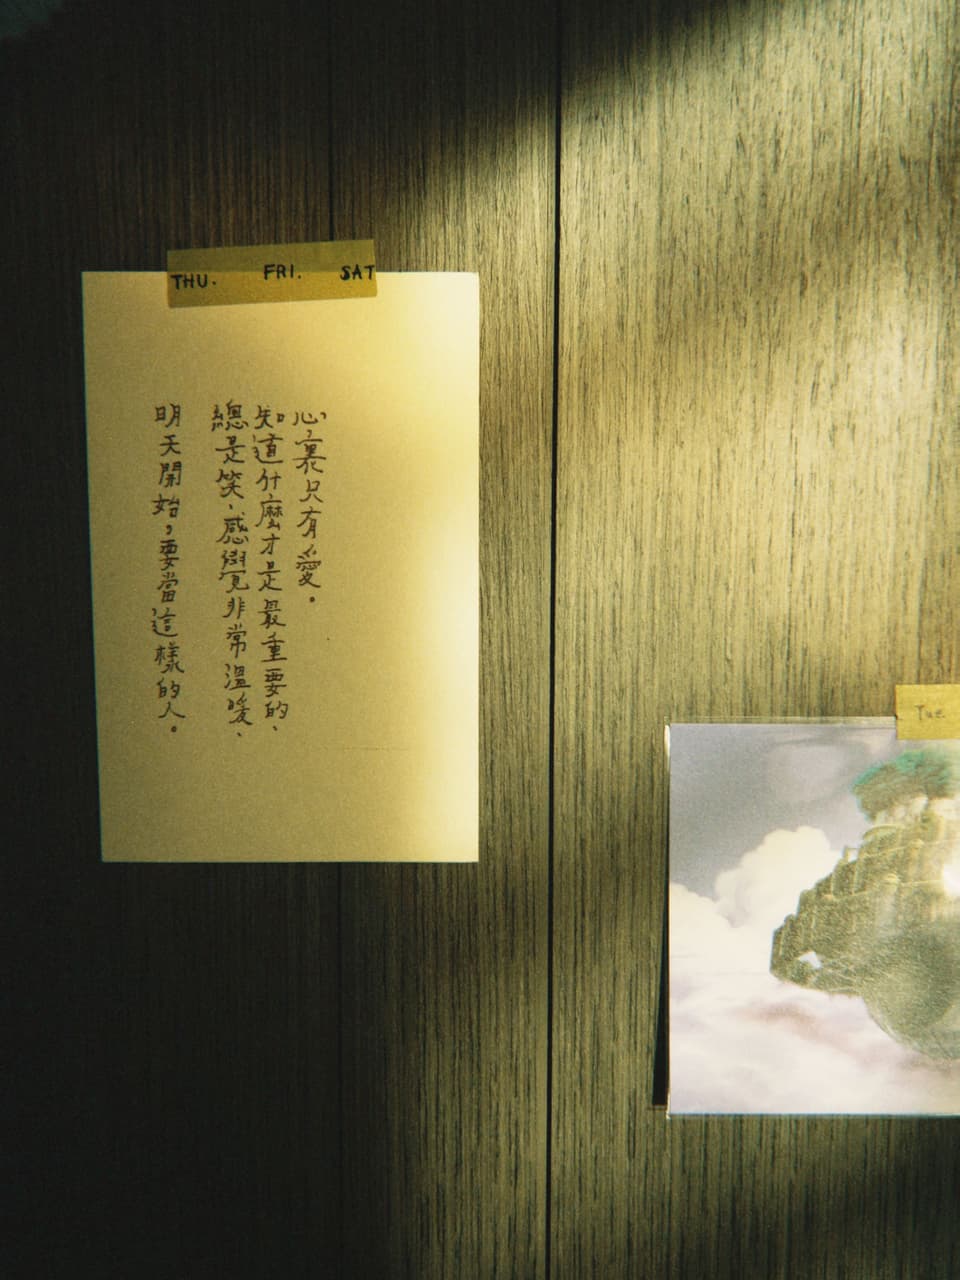 THU. FRI. SAT
心裏只有愛。
知道什麼才是最重要的、
總是笑、感覺非常溫暖、
明天開始，要當這樣的人。
Tue.